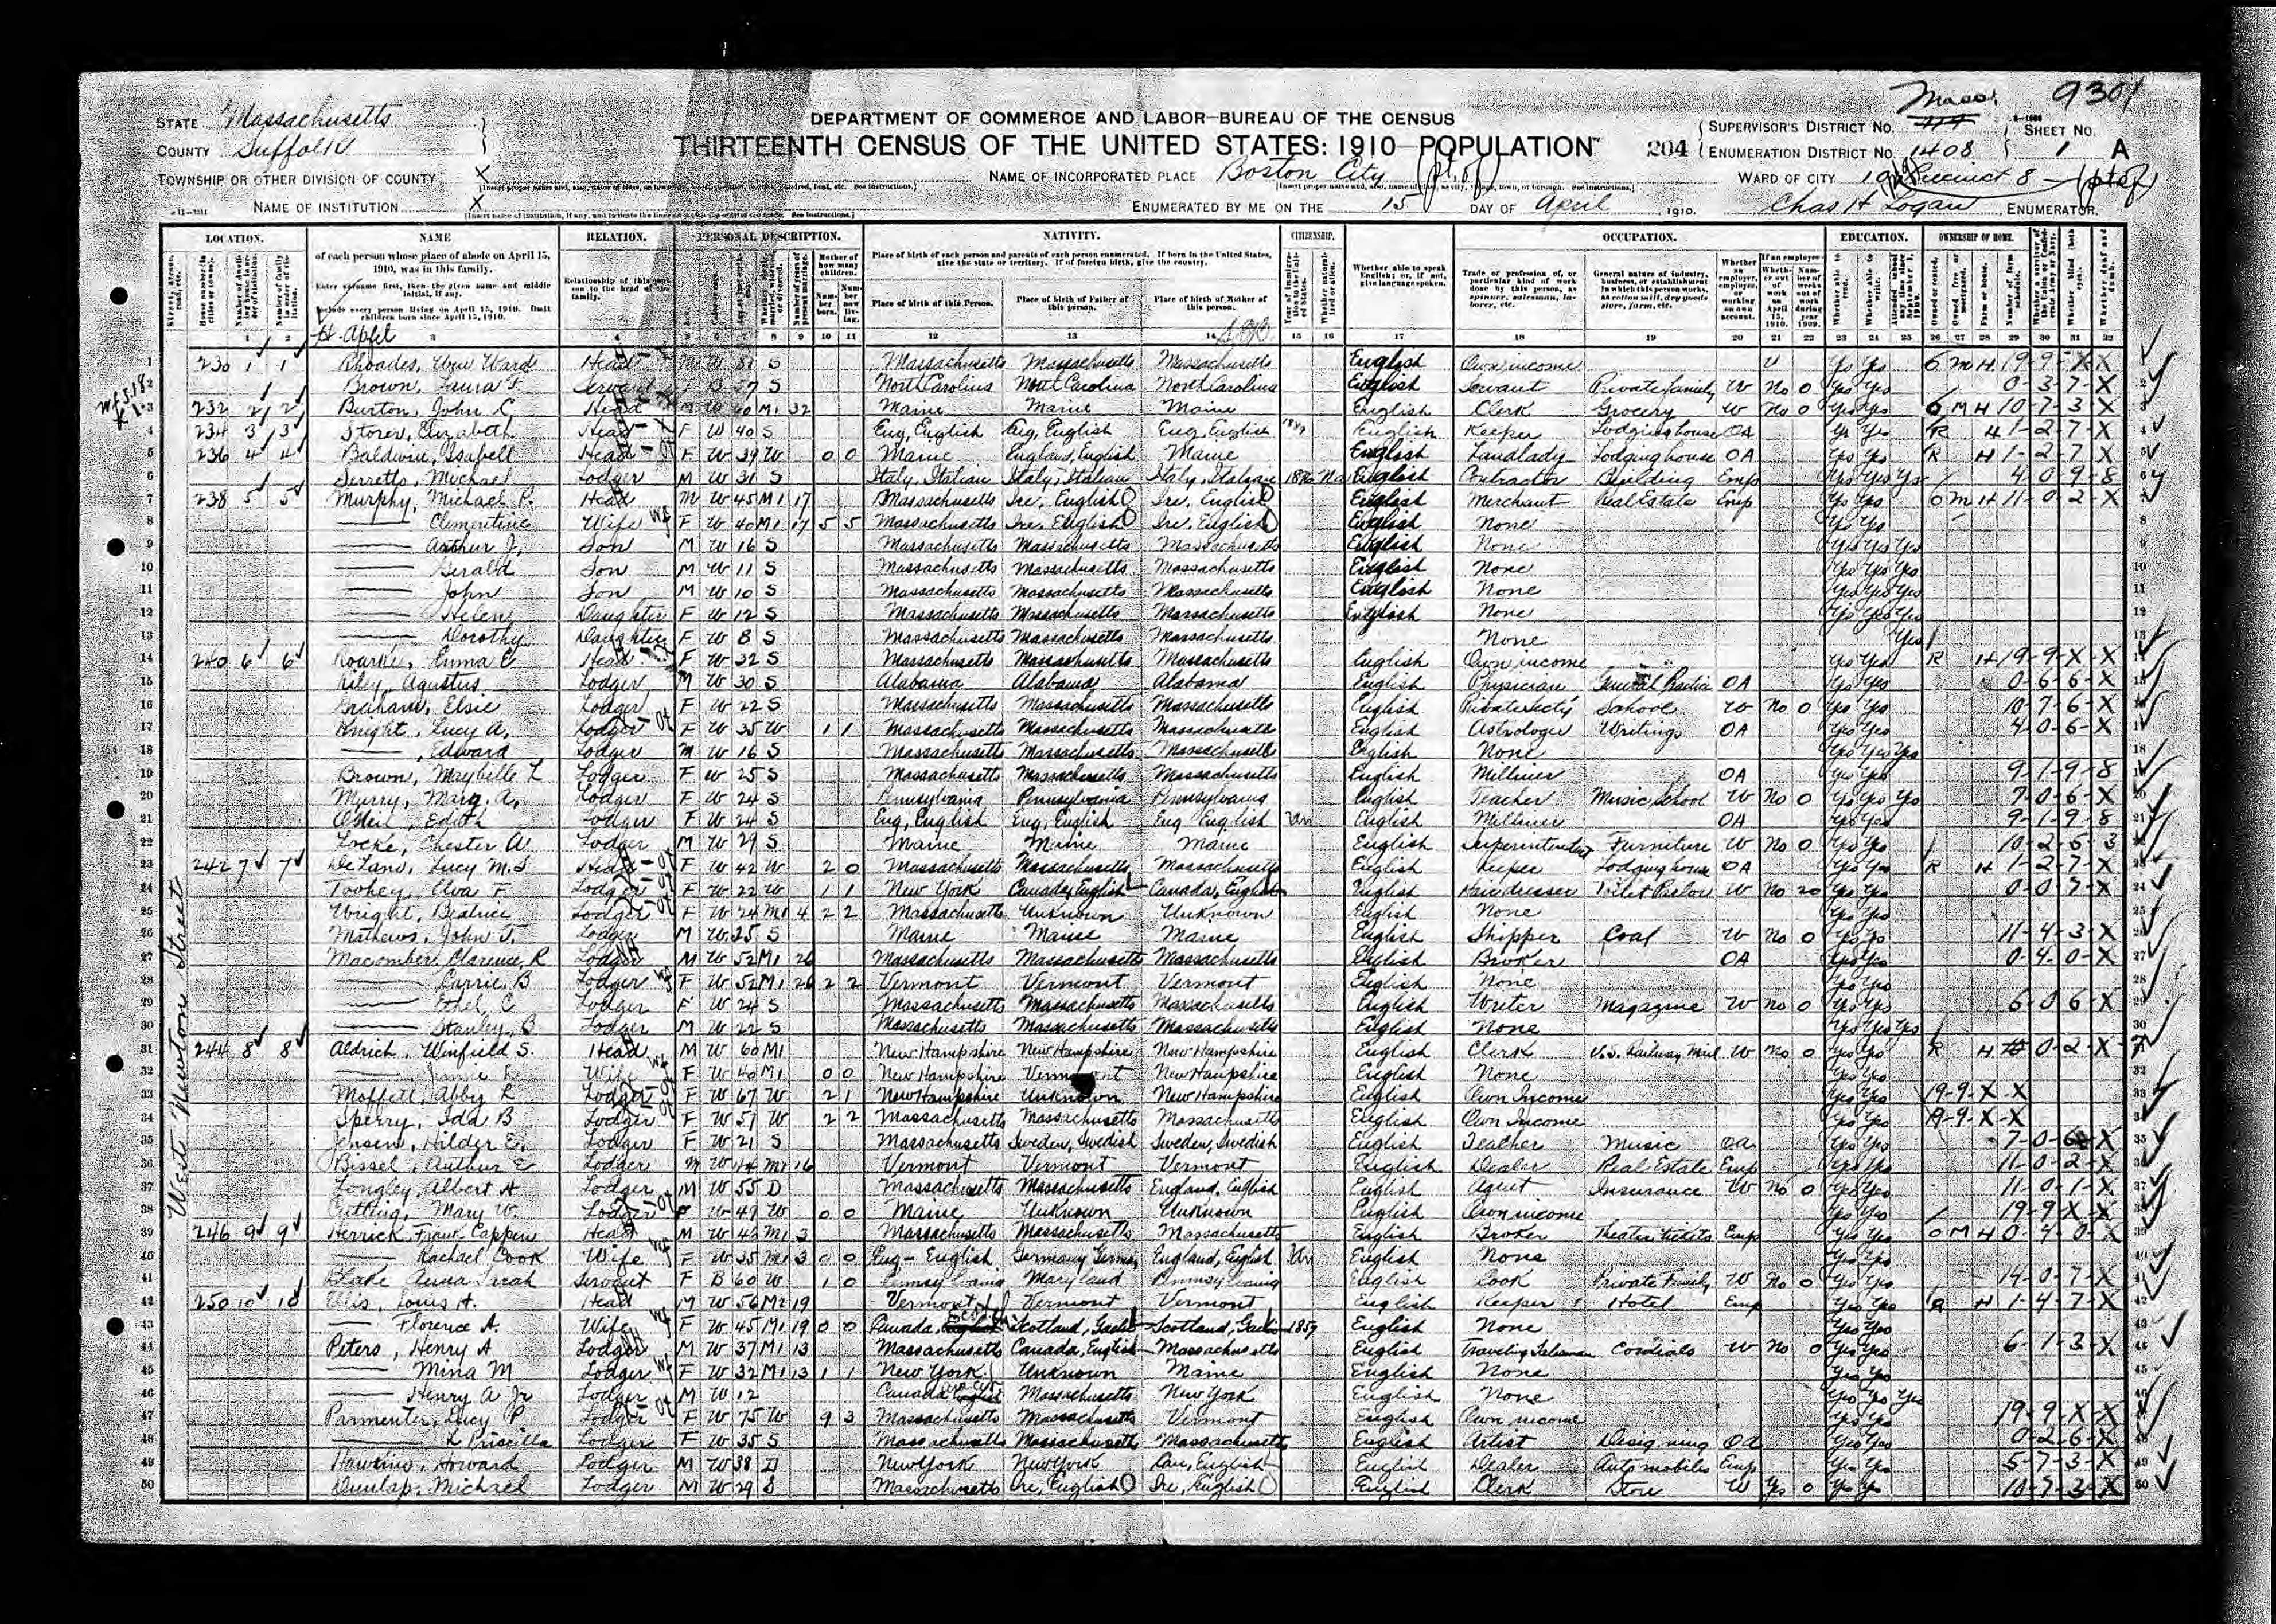 Mass. 9301
DEPARTMENT OF COMMERCE AND LABOR—BUREAU OF THE CENSUS
THIRTEENTH CENSUS OF THE UNITED STATES: 1910—POPULATION
STATE Massachusetts
COUNTY Suffolk
TOWNSHIP OR OTHER DIVISION OF COUNTY X
NAME OF INSTITUTION X
NAME OF INCORPORATED PLACE Boston City (pt. of)
ENUMERATED BY ME ON THE 15 DAY OF April, 1910.
204
SUPERVISOR'S DISTRICT No.
ENUMERATION DISTRICT No. 1408
SHEET No. 1 A
WARD OF CITY Precinct 8 (pt of)
Chas H Logan, ENUMERATOR.
LOCATION. NAME RELATION. PERSONAL DESCRIPTION. NATIVITY. CITIZENSHIP. OCCUPATION. EDUCATION. OWNERSHIP OF HOME.
of each person whose place of abode on April 15, 1910, was in this family.
Enter surname first, then the given name and middle initial, if any.
Include every person living on April 15, 1910. Omit children born since April 15, 1910.
Relationship of this person to the head of the family.
Place of birth of each person and parents of each person enumerated. If born in the United States, give the state or territory. If of foreign birth, give the country.
Place of birth of this Person. Place of birth of Father of this person. Place of birth of Mother of this person.
Whether able to speak English; or, if not, give language spoken.
West Newton Street
1 230 1 1 Rhoades, Wm Ward Head M W S Massachusetts Massachusetts Massachusetts English Own income Yes Yes O M H
2 Brown, Laura F. Servant B S North Carolina North Carolina North Carolina English Servant Private family W No 0 Yes Yes 0-3-7-X
3 232 2 2 Burton, John C Head M W M1 32 Maine Maine Maine English Clerk Grocery W No 0 Yes Yes O M H 10-7-3 X
4 234 3 3 Storer, Elizabeth Head F W 40 S Eng, English Eng, English Eng, English English Keeper Lodging house OA Yes Yes R H 1-2-7-X
5 236 4 4 Baldwin, Isabell Head F W 39 W 0 0 Maine England, English Maine English Landlady Lodging house OA Yes Yes R H 1-2-7-X
6 Serretto, Michael Lodger M W 31 S Italy, Italian Italy, Italian Italy, Italian English Contractor Building Emp Yes Yes Yes 4-0-9-8
7 238 5 5 Murphy, Michael P. Head M W 45 M1 17 Massachusetts Ire, English Ire, English English Merchant Real Estate Emp Yes Yes O M H 11-0-2-X
8 —— Clementine Wife F W 40 M1 17 5 5 Massachusetts Ire, English Ire, English English None Yes Yes
9 —— Arthur J. Son M W 16 S Massachusetts Massachusetts Massachusetts English None Yes Yes Yes
10 —— Gerald Son M W 11 S Massachusetts Massachusetts Massachusetts English None Yes Yes Yes
11 —— John Son M W 10 S Massachusetts Massachusetts Massachusetts English None Yes Yes Yes
12 —— Helen Daughter F W 12 S Massachusetts Massachusetts Massachusetts English None Yes Yes Yes
13 —— Dorothy Daughter F W 8 S Massachusetts Massachusetts Massachusetts None Yes
14 240 6 6 Rourke, Emma E Head F W 32 S Massachusetts Massachusetts Massachusetts English Own income Yes Yes R H 19-9-X-X
15 Riley, Agustus Lodger M W 30 S Alabama Alabama Alabama English Physician General Practice OA Yes Yes 0-6-6-X
16 Graham, Elsie Lodger F W 22 S Massachusetts Massachusetts Massachusetts English School W No 0 Yes Yes 10-7-6-X
17 Knight, Lucy A. Lodger F W 35 W 1 1 Massachusetts Massachusetts Massachusetts English Astrologer Writings OA Yes Yes 4-0-6-X
18 ——, Edward Lodger M W 16 S Massachusetts Massachusetts Massachusetts English None Yes Yes Yes
19 Brown, Maybelle L Lodger F W 25 S Massachusetts Massachusetts Massachusetts English Milliner OA Yes Yes 9-1-9-8
20 Murry, Marg. A. Lodger F W 24 S Pennsylvania Pennsylvania Pennsylvania English Teacher Music School W No 0 Yes Yes Yes 7-0-6-X
21 O'Neil, Edith Lodger F W 24 S Eng, English Eng, English Eng English Un English Milliner OA Yes Yes 9-1-9-8
22 Locke, Chester W Lodger M W 29 S Maine Maine Maine English Superintendent Furniture W No 0 Yes Yes 10-2-5-3
23 242 7 7 DeLano, Lucy M.S Head F W 42 W 2 0 Massachusetts Massachusetts Massachusetts English Keeper Lodging house OA Yes Yes R H 1-2-7-X
24 Toohey, Elva F Lodger F W 22 W 1 1 New York Canada, English Canada, English English Hairdresser Toilet Parlor W No 20 Yes Yes 0-0-7-X
25 Wright, Beatrice Lodger F W 24 M1 4 2 2 Massachusetts Unknown Unknown English None Yes Yes
26 Mathews, John T. Lodger M W 25 S Maine Maine Maine English Shipper Coal W No 0 Yes Yes 11-4-3-X
27 Macomber, Clarence R Lodger M W 52 M1 26 Massachusetts Massachusetts Massachusetts English Broker OA Yes Yes 0-4-0-X
28 —— Carrie B Lodger F W 52 M1 26 2 2 Vermont Vermont Vermont English None Yes Yes
29 —— Ethel C Lodger F W 24 S Massachusetts Massachusetts Massachusetts English Writer Magazine W No 0 Yes Yes 6-0 6-X
30 —— Stanley B Lodger M W 22 S Massachusetts Massachusetts Massachusetts English None Yes Yes Yes
31 244 8 8 Aldrich, Winfield S. Head M W 60 M1 New Hampshire New Hampshire New Hampshire English Clerk U.S. Railway Mail W No 0 Yes Yes R H 0-2-X
32 —— Jennie L Wife F W 40 M1 0 0 New Hampshire Vermont New Hampshire English None Yes Yes
33 Moffett, Abby L Lodger F W 67 W 2 1 New Hampshire Unknown New Hampshire English Own Income Yes Yes 19-9-X-X
34 Sperry, Ida B Lodger F W 57 W 2 2 Massachusetts Massachusetts Massachusetts English Own Income Yes Yes 19-9-X-X
35 Jensen, Hilder E. Lodger F W 21 S Massachusetts Sweden, Swedish Sweden, Swedish English Teacher Music OA Yes Yes 7-0-6-X
36 Bissel, Arthur E Lodger M W 44 M1 16 Vermont Vermont Vermont English Dealer Real Estate Emp Yes Yes 11-0-2-X
37 Longley, Albert H Lodger M W 55 D Massachusetts Massachusetts England, English English Agent Insurance W No 0 Yes Yes 11-0-1-X
38 Cutting, Mary W. Lodger F W 49 W 0 0 Maine Unknown Unknown English Own income Yes Yes 19-9-X-X
39 246 9 9 Herrick, Frank Cappen Head M W 43 M1 3 Massachusetts Massachusetts Massachusetts English Broker Theatre tickets Emp Yes Yes O M H 0-4-0-X
40 —— Rachael Cook Wife F W 35 M1 3 0 0 Eng-English Germany German England, English Un English None Yes Yes
41 Blake Anna Sirah Servant F B 60 W 1 0 Pennsylvania Maryland Pennsylvania English Cook Private Family W No 0 Yes Yes 14-0-7-X
42 250 10 10 Ellis, Louis H. Head M W 56 M2 19 Vermont Vermont Vermont English Keeper Hotel Emp Yes Yes R H 1-4-7-X
43 —— Florence A. Wife F W 45 M1 19 0 0 Canada, Scotland, Gaelic Scotland, Gaelic 1859 English None Yes Yes
44 Peters, Henry A Lodger M W 37 M1 13 Massachusetts Canada, English Massachusetts English Traveling Salesman Cordials W No 0 Yes Yes 6-1-3-X
45 —— Mina M Lodger F W 32 M1 13 1 1 New York Unknown Maine English None Yes Yes
46 —— Henry A Jr Lodger M W 12 Canada Massachusetts New York English None Yes Yes Yes
47 Parmenter, Lucy P Lodger F W 75 W 9 3 Massachusetts Massachusetts Vermont English Own income Yes Yes 19-9-X-X
48 —— L Priscilla Lodger F W 35 S Massachusetts Massachusetts Massachusetts English Artist Designing OA Yes Yes 0-2-6-X
49 Hawkins, Howard Lodger M W 38 D New York New York Can, English English Dealer Automobiles Emp Yes Yes 5-7-3-X
50 Dunlap, Michael Lodger M W 29 S Massachusetts Ire, English Ire, English English Clerk Store W Yes 0 Yes Yes 10-7-3-X